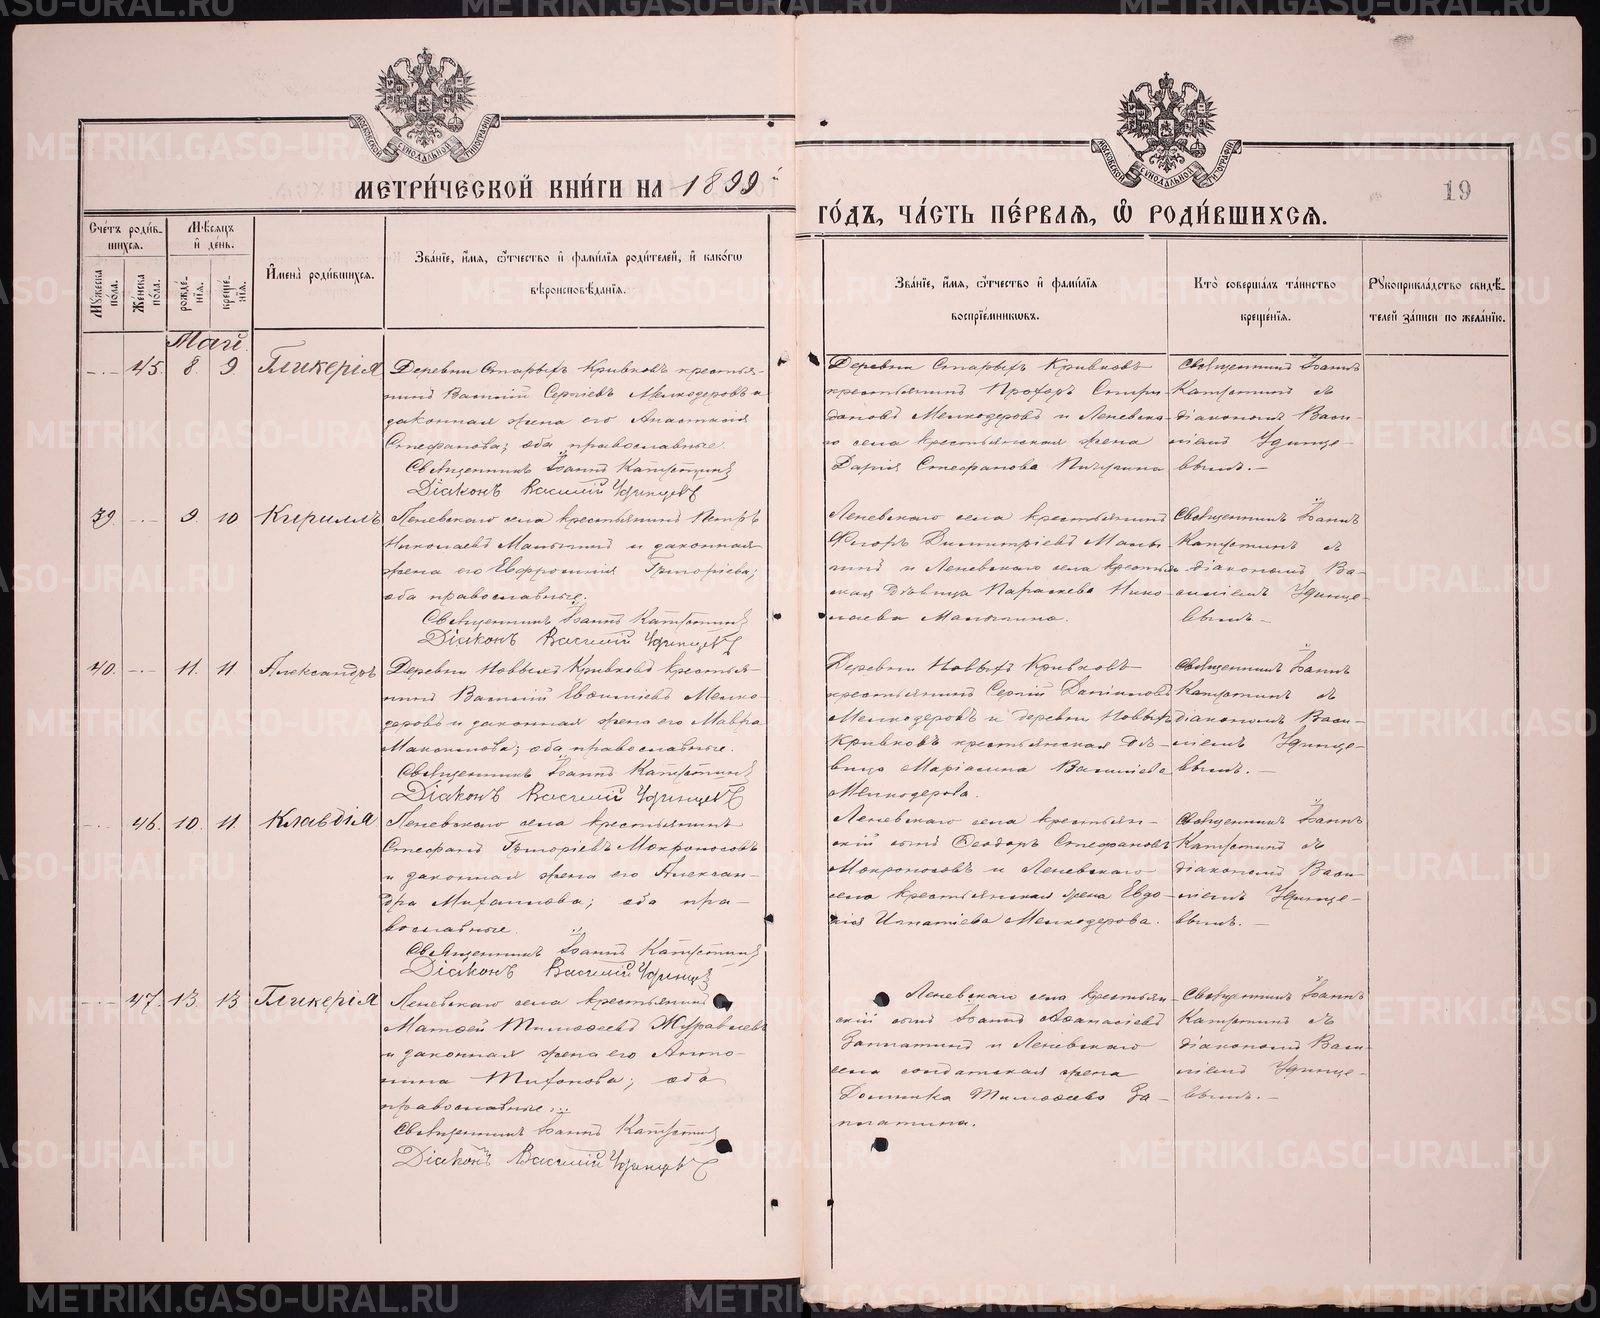 МОСКОВСКОЙ СУНОДАЛЬНОЙ ТИПОГРАФІИ
МОСКОВСКОЙ СУНОДАЛЬНОЙ ТИПОГРАФІИ
МЕТРИ́ЧЕСКОЙ КНИ́ГИ НА 1899й
ГО́ДЪ, ЧА́СТЬ ПЕ́РВАЯ, Ѡ РОДИ́ВШИХСЯ.
19
Сче́тъ роди́в-
шихся.
Мѣ́сяцъ
и де́нь.
Му́жеска
по́ла.
Же́нска
по́ла.
рожде́-
нія.
креще́-
нія.
Имена̀ роди́вшихся.
Зва́ніе, и́мя, ѻ́тчество и фами́лія роди́телей, и како́гѡ
вѣроисповѣ́данія.
Зва́ніе, и́мя, ѻ́тчество и фами́лія
воспріе́мникѡвъ.
Кто̀ соверша́лъ та́инство
креще́нія.
Рꙋкоприкла́дство свидѣ́-
телей за́писи по жела́нію.
Май.
45. 8. 9. Гликерія
Деревни Старыхъ Кривковъ крестья-
нинъ Василій Сергіевъ Мелкодеровъ и
законная жена его Анастасія
Стефанова; оба православные.
Священникъ Іоаннъ
Діаконъ Василій Удинцевъ
Деревни Старыхъ Кривковъ
крестьянинъ Прохоръ Спири-
доновъ Мелкодеровъ и Леневска-
го села крестьянская жена
Дарія Стефанова
Священникъ Іоаннъ
съ
діакономъ Васи-
ліемъ Удинце-
вымъ.—
39. 9. 10 Кириллъ
Леневскаго села крестьянинъ Петръ
Николаевъ Малыгинъ и законная
жена его Евфросинія Григоріева;
оба православные.
Священникъ Іоаннъ
Діаконъ Василій Удинцевъ
Леневскаго села крестьянинъ
Димитріевъ Малы-
гинъ и Леневскаго села крестьян-
ская дѣвица Параскева Нико-
лаева Малыгина.
Священникъ Іоаннъ
съ
діакономъ Ва-
силіемъ Удинце-
вымъ.—
40. 11. 11. Александръ
Деревни Новыхъ Кривковъ крестья-
нинъ Василій Евѳиміевъ Мелко-
деровъ и законная жена его Мавра
Максимова; оба православные.
Священникъ Іоаннъ
Діаконъ Василій Удинцевъ
Деревни Новыхъ Кривковъ
крестьянинъ Сергій Даніиловъ
Мелкодеровъ и деревни Новыхъ
Кривковъ крестьянская дѣ-
вица Маріамна Василіева
Мелкодерова.
Священникъ Іоаннъ
съ
діакономъ Васи-
ліемъ Удинце-
вымъ.—
46. 10. 11. Клавдія
Леневскаго села крестьянинъ
Стефанъ Григоріевъ Мокроносовъ
и законная жена его Алексан-
дра Михаилова; оба пра-
вославные.
Священникъ Іоаннъ
Діаконъ Василій Удинцевъ
Леневскаго села крестьян-
скій сынъ Ѳеодоръ Стефановъ
Мокроносовъ и Леневскаго
села крестьянская жена Евдо-
кія Игнатіева Мелкодерова.
Священникъ Іоаннъ
съ
діакономъ Васи-
ліемъ Удинце-
вымъ.—
47. 13. 13 Гликерія
Леневскаго села крестьянинъ
Матѳей Тимоѳеевъ Журавлевъ
и законная жена его Анто-
нина Тихонова; оба
православные.
Священникъ Іоаннъ
Діаконъ Василій Удинцевъ
Леневскаго села крестьян-
скій сынъ Іоаннъ Аѳанасіевъ
Заплатинъ и Леневскаго
села солдатская жена
Домника Тимоѳеева За-
платина.
Священникъ Іоаннъ
съ
діакономъ Васи-
ліемъ Удинце-
вымъ.—
METRIKI.GASO-URAL.RU